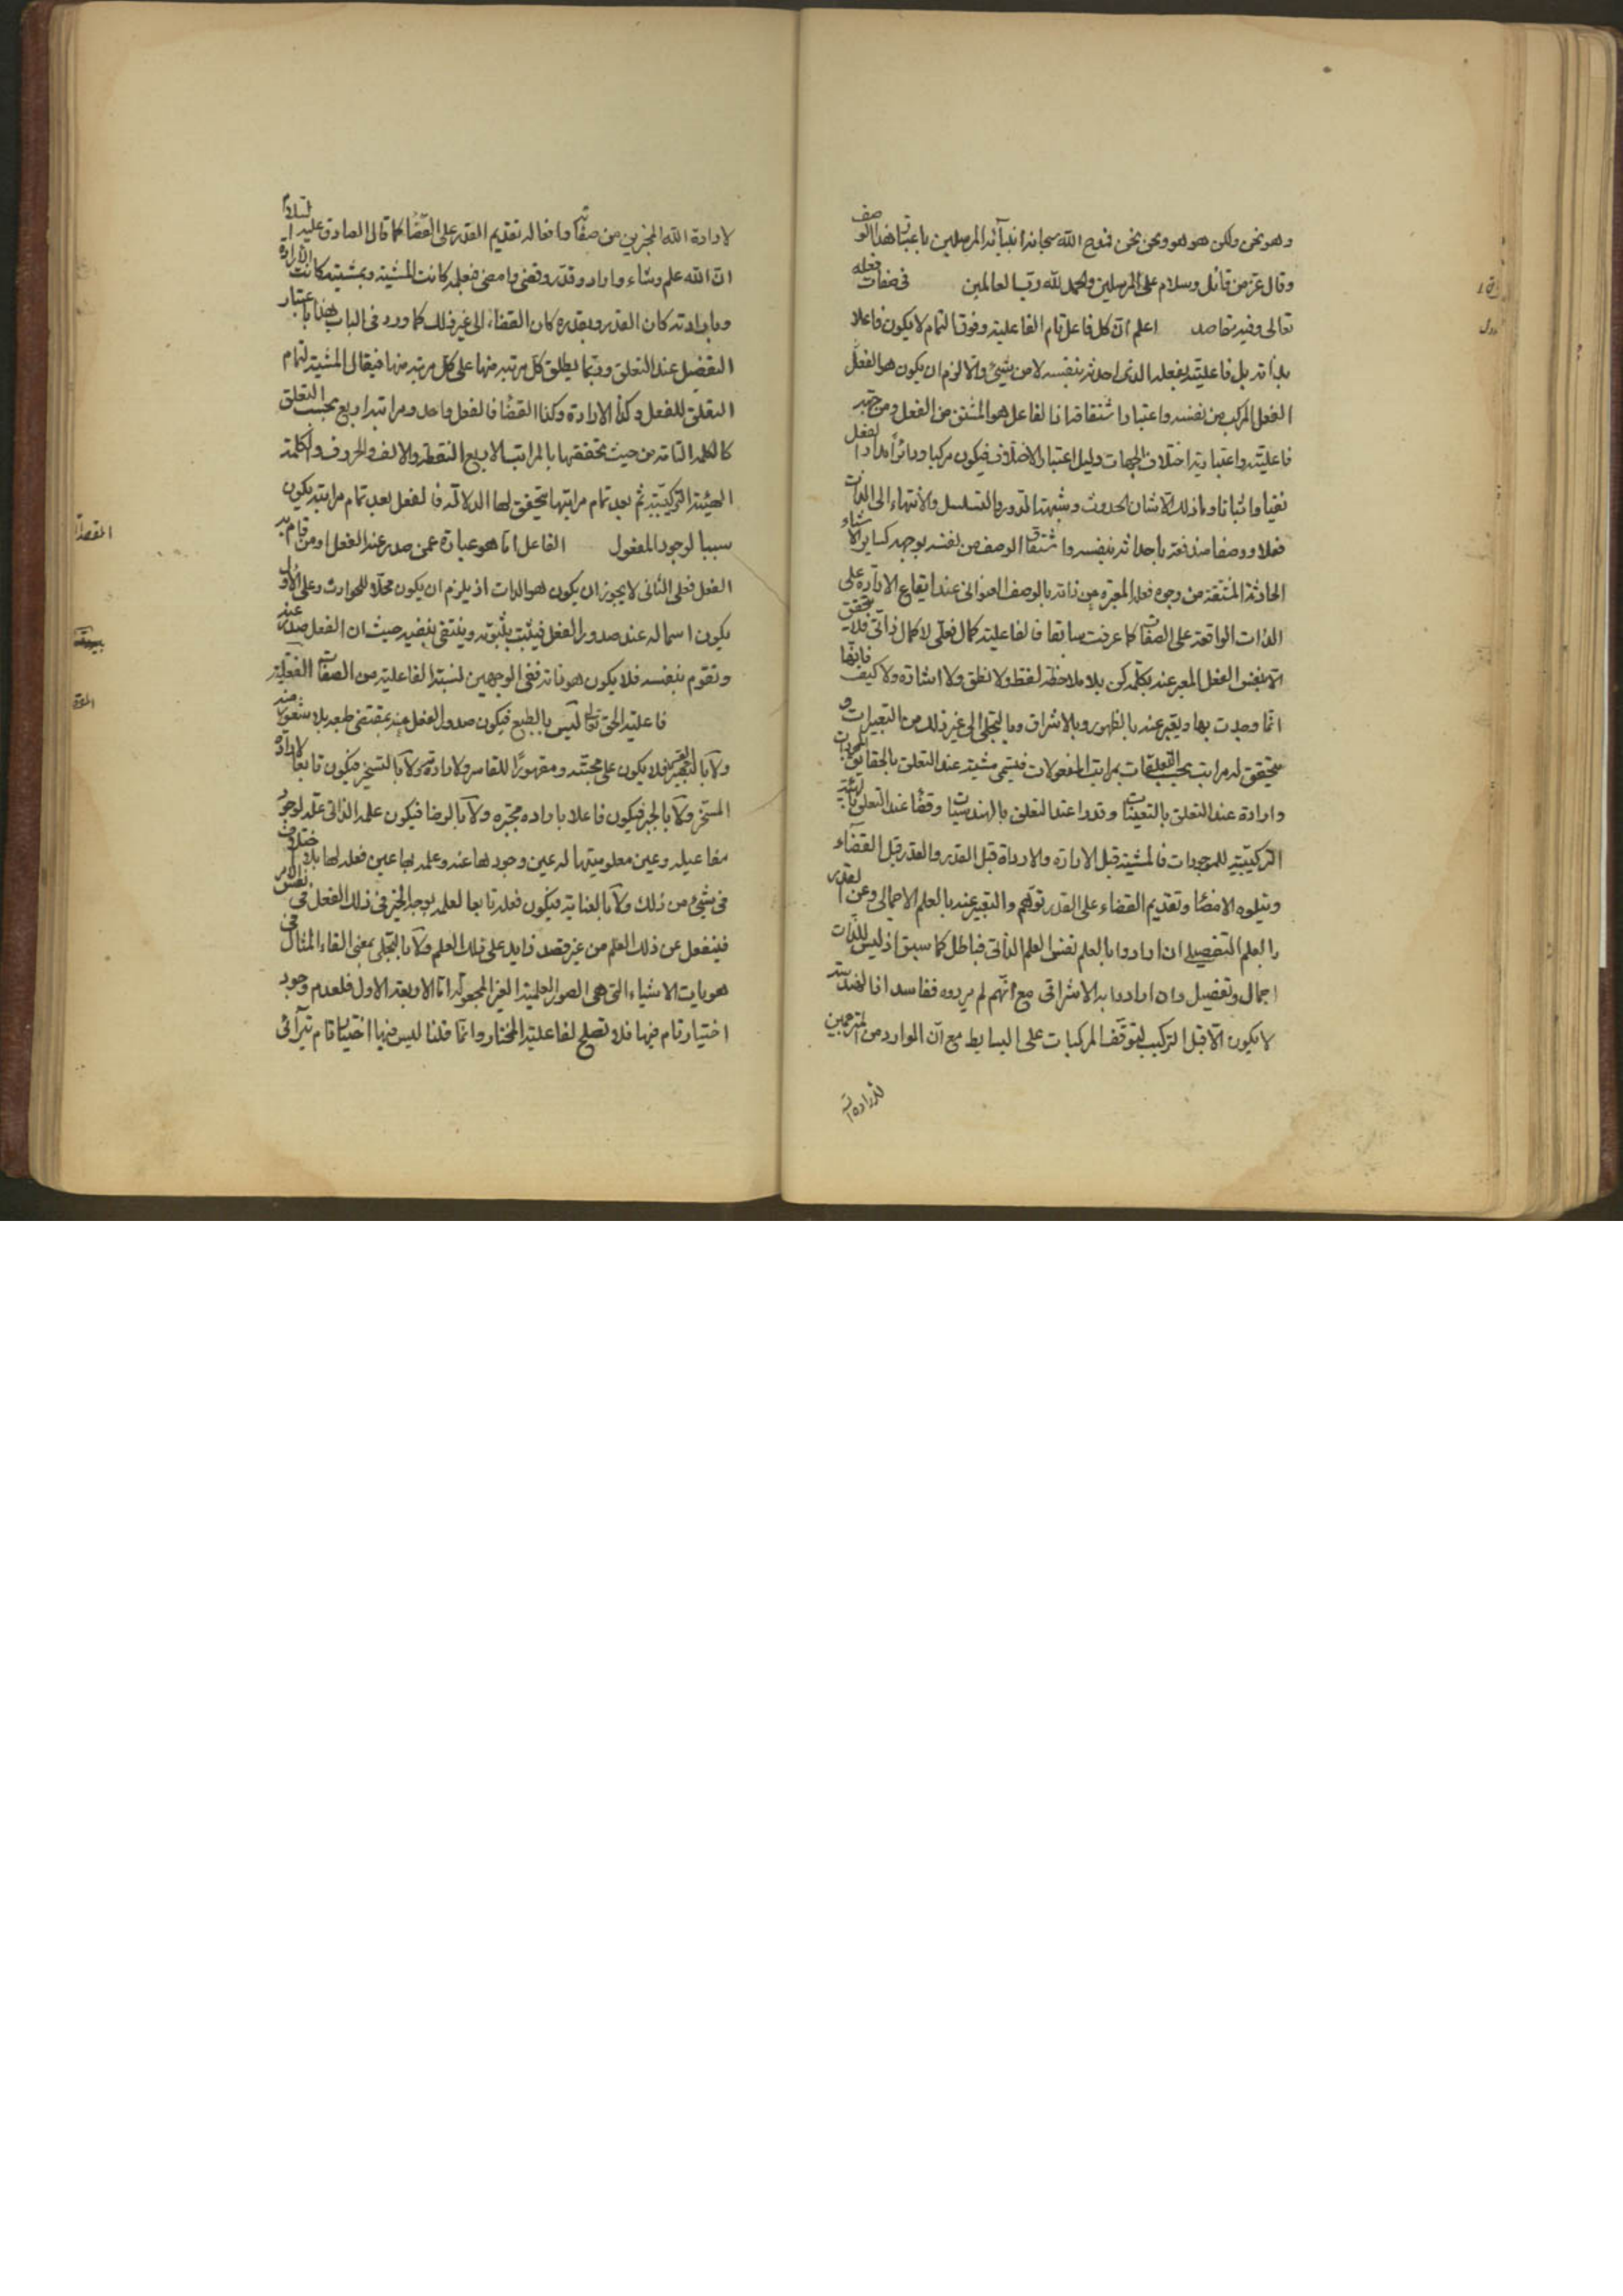 وهو نحن ولكن هو هو ونحن نحن فنعت الله سبحانه انبيآئه المرسلين باعتبار هذا الوصف
وقال عز من قائل وسلام على المرسلين والحمد لله رب العالمين في صفات فعله
تعالى وفيه مقاصد اعلم ان كل فاعل تام الفاعلية وفوق التمام لا يكون فاعلا
بذاته بل فاعليته بفعله الذى احدثه بنفسه لا من شيئ والا لزم ان يكون هو الفعل
الفعل المركب من نفسه واعتبار اشتقاقه اذ الفاعل هو المشتق من الفعل ومن جهة
فاعليته واعتباريه اختلاف الجهات دليل اعتبار الاختلاف فيكون مركبا ودائراً مدار الفعل
نفيا واثباتا وما ذلك الا شان الحدوث وشبهة الدور والتسلسل والانتهاء الى الذات
فعلا ووصفا مندفعة باحداثه بنفسه واشتقاق الوصف من نفسه بوجهه كساير الاشياء
الحادثة المشتقة من وجوه فعله المعبره عن ذاته بالوصف العنواني عند ايقاع الارآدة على
الذات الواقعة على الصفات كما عرفت سابقا فالفاعلية كمال فعلى لا كمال ذاتى فلا يتحقق
الا بنفس الفعل المعبر عنه بكلمة كن بلا ملاحظة لفظ ولا نطق ولا اشارة ولا كيف فانها
انما وجدت بها ويعبر عنه بالظهور وبالاشراق وبالتجلى الى غير ذلك من التعبيرات و
يتحقق له مراتب بحسب التعلقات بمراتب المفعولات فيسمى مشية عند التعلق بالحقايق
وارادة عند التعلق بالتعينات وقدرا عند التعلق بالهندسيات وقضا عند التعلق بالهيئة
التركيبية للموجودات فالمشية قبل الارادة والارادة قبل القدر والقدر قبل القضاء
ويتلوه الامضا وتقديم القضاء على القدر توهم والتعبير عنه بالعلم الاجمالى وعن القدر
بالعلم التفصيلى ان ارادوا بالعلم نفس العلم الذاتى فباطل كما سبق اذ ليس للذات
اجمال وتفصيل وان ارادوا به الاشراقى مع انهم لم يريدوه ففاسد اذ الهندسة
لا يكون الا قبل التركيب لتوقف المركبات على البسايط مع ان الوارد من المترجمين
لارادة الله
لارادة الله المخبرين من صفاته وافعاله تقديم القدر على القضا كما قال الصادق عليه السلام
ان الله علم وشاء واراد وقدر وقضى وامضى فبعلمه كانت المشية وبمشيته كانت الارادة
وبارادته كان القدر وبقدره كان القضاء الى غير ذلك كما ورد فى الباب هذا باعتبار
التفضل عند التعلق وربما يطلق كل مرتبة منها على كل مرتبة منها فيقال المشية لتمام
التعلق للفعل وكذا الارادة وكذا القضا فالفعل واحد ومراتبه اربع بحسب التعلق
كالكلمة التامة من حيث تحققها بالمراتب الاربع النقطة والالف والحروف والكلمة
الهيئة التركيبية ثم بعد تمام مراتبها يتحقق لها الدلالة فالفعل بعد تمام مراتبه يكون
سببا لوجود المفعول الفاعل اما هو عبارة عمن صدر عنه الفعل او من قام به
الفعل فعلى الثانى لا يجوز ان يكون هو الذات اذ يلزم ان يكون محلا للحوادث وعلى الاول
يكون اسما له عند صدور الفعل فيثبت بثبوته وينتفى بنفيه حيث ان الفعل صدر عنه
وتقوم بنفسه فلا يكون هو ذاته ففى الوجهين لنسبة الفاعلية من الصفات الفعلية
فاعلية الحق تعالى ليس بالطبع فيكون صدور الفعل منه بمقتضى طبعه بلا شعور منه
ولا بالتقسير فلا يكون على محبته ومقهورًا للقاسر ولا ارادة ولا بالتسخير فيكون تابعا لارآدة
المسخر ولا بالجبر فيكون فاعلا باراده مجبره ولا بالرضا فيكون علمه الذاتى علة لوجود
مفاعيله وعين معلوميتها له عين وجودها عنه وعلمه بها عين فعله لها بلا اختلاف
فى شيئ من ذلك ولا بالعناية فيكون فعله تابعا لعلمه بوجه الخير فى ذلك الفعل فى نفس الامر
فيفعل عن ذلك العلم من غير قصد زايد على ذلك العلم ولا بالتجلى بمعنى القاء المثال فى
هويات الاشياء التى هى الصور العلمية الغير المجعولة اما الاربعة الاول فلعدم وجود
اختيار تام فيها فلا تصلح لفاعلية المختار وانما قلنا ليس فيها اختيار تام
المقصد